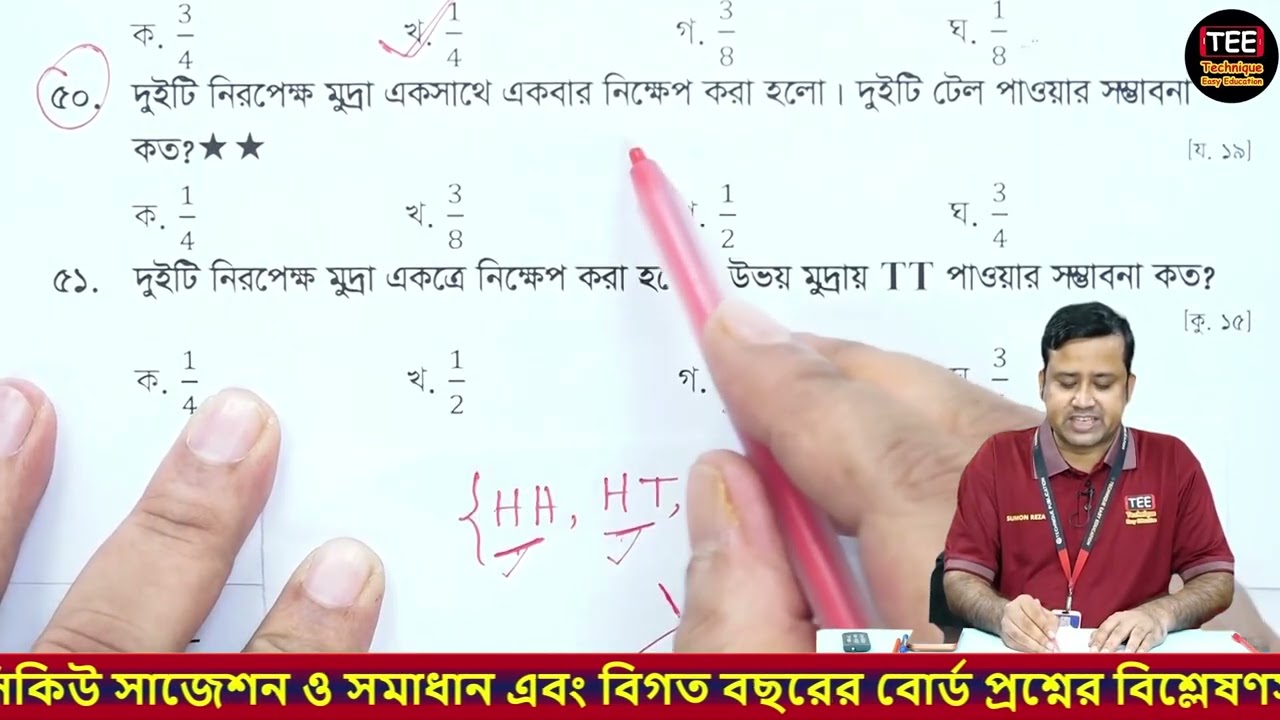 ক. 3/4 খ. 1/4 গ. 3/8 ঘ. 1/8
TEE
Technique
Easy Education
৫০. দুইটি নিরপেক্ষ মুদ্রা একসাথে একবার নিক্ষেপ করা হলো। দুইটি টেল পাওয়ার সম্ভাবনা
কত?★★ [য. ১৯]
ক. 1/4 খ. 3/8 . 1/2 ঘ. 3/4
৫১. দুইটি নিরপেক্ষ মুদ্রা একত্রে নিক্ষেপ করা উভয় মুদ্রায় TT পাওয়ার সম্ভাবনা কত?
[কু. ১৫]
ক. 1/4 খ. 1/2 গ. 3
{HH, HT,
SUMON REZA
TEE
Technique
Easy Education
সাজেশন ও সমাধান এবং বিগত বছরের বোর্ড প্রশ্নের